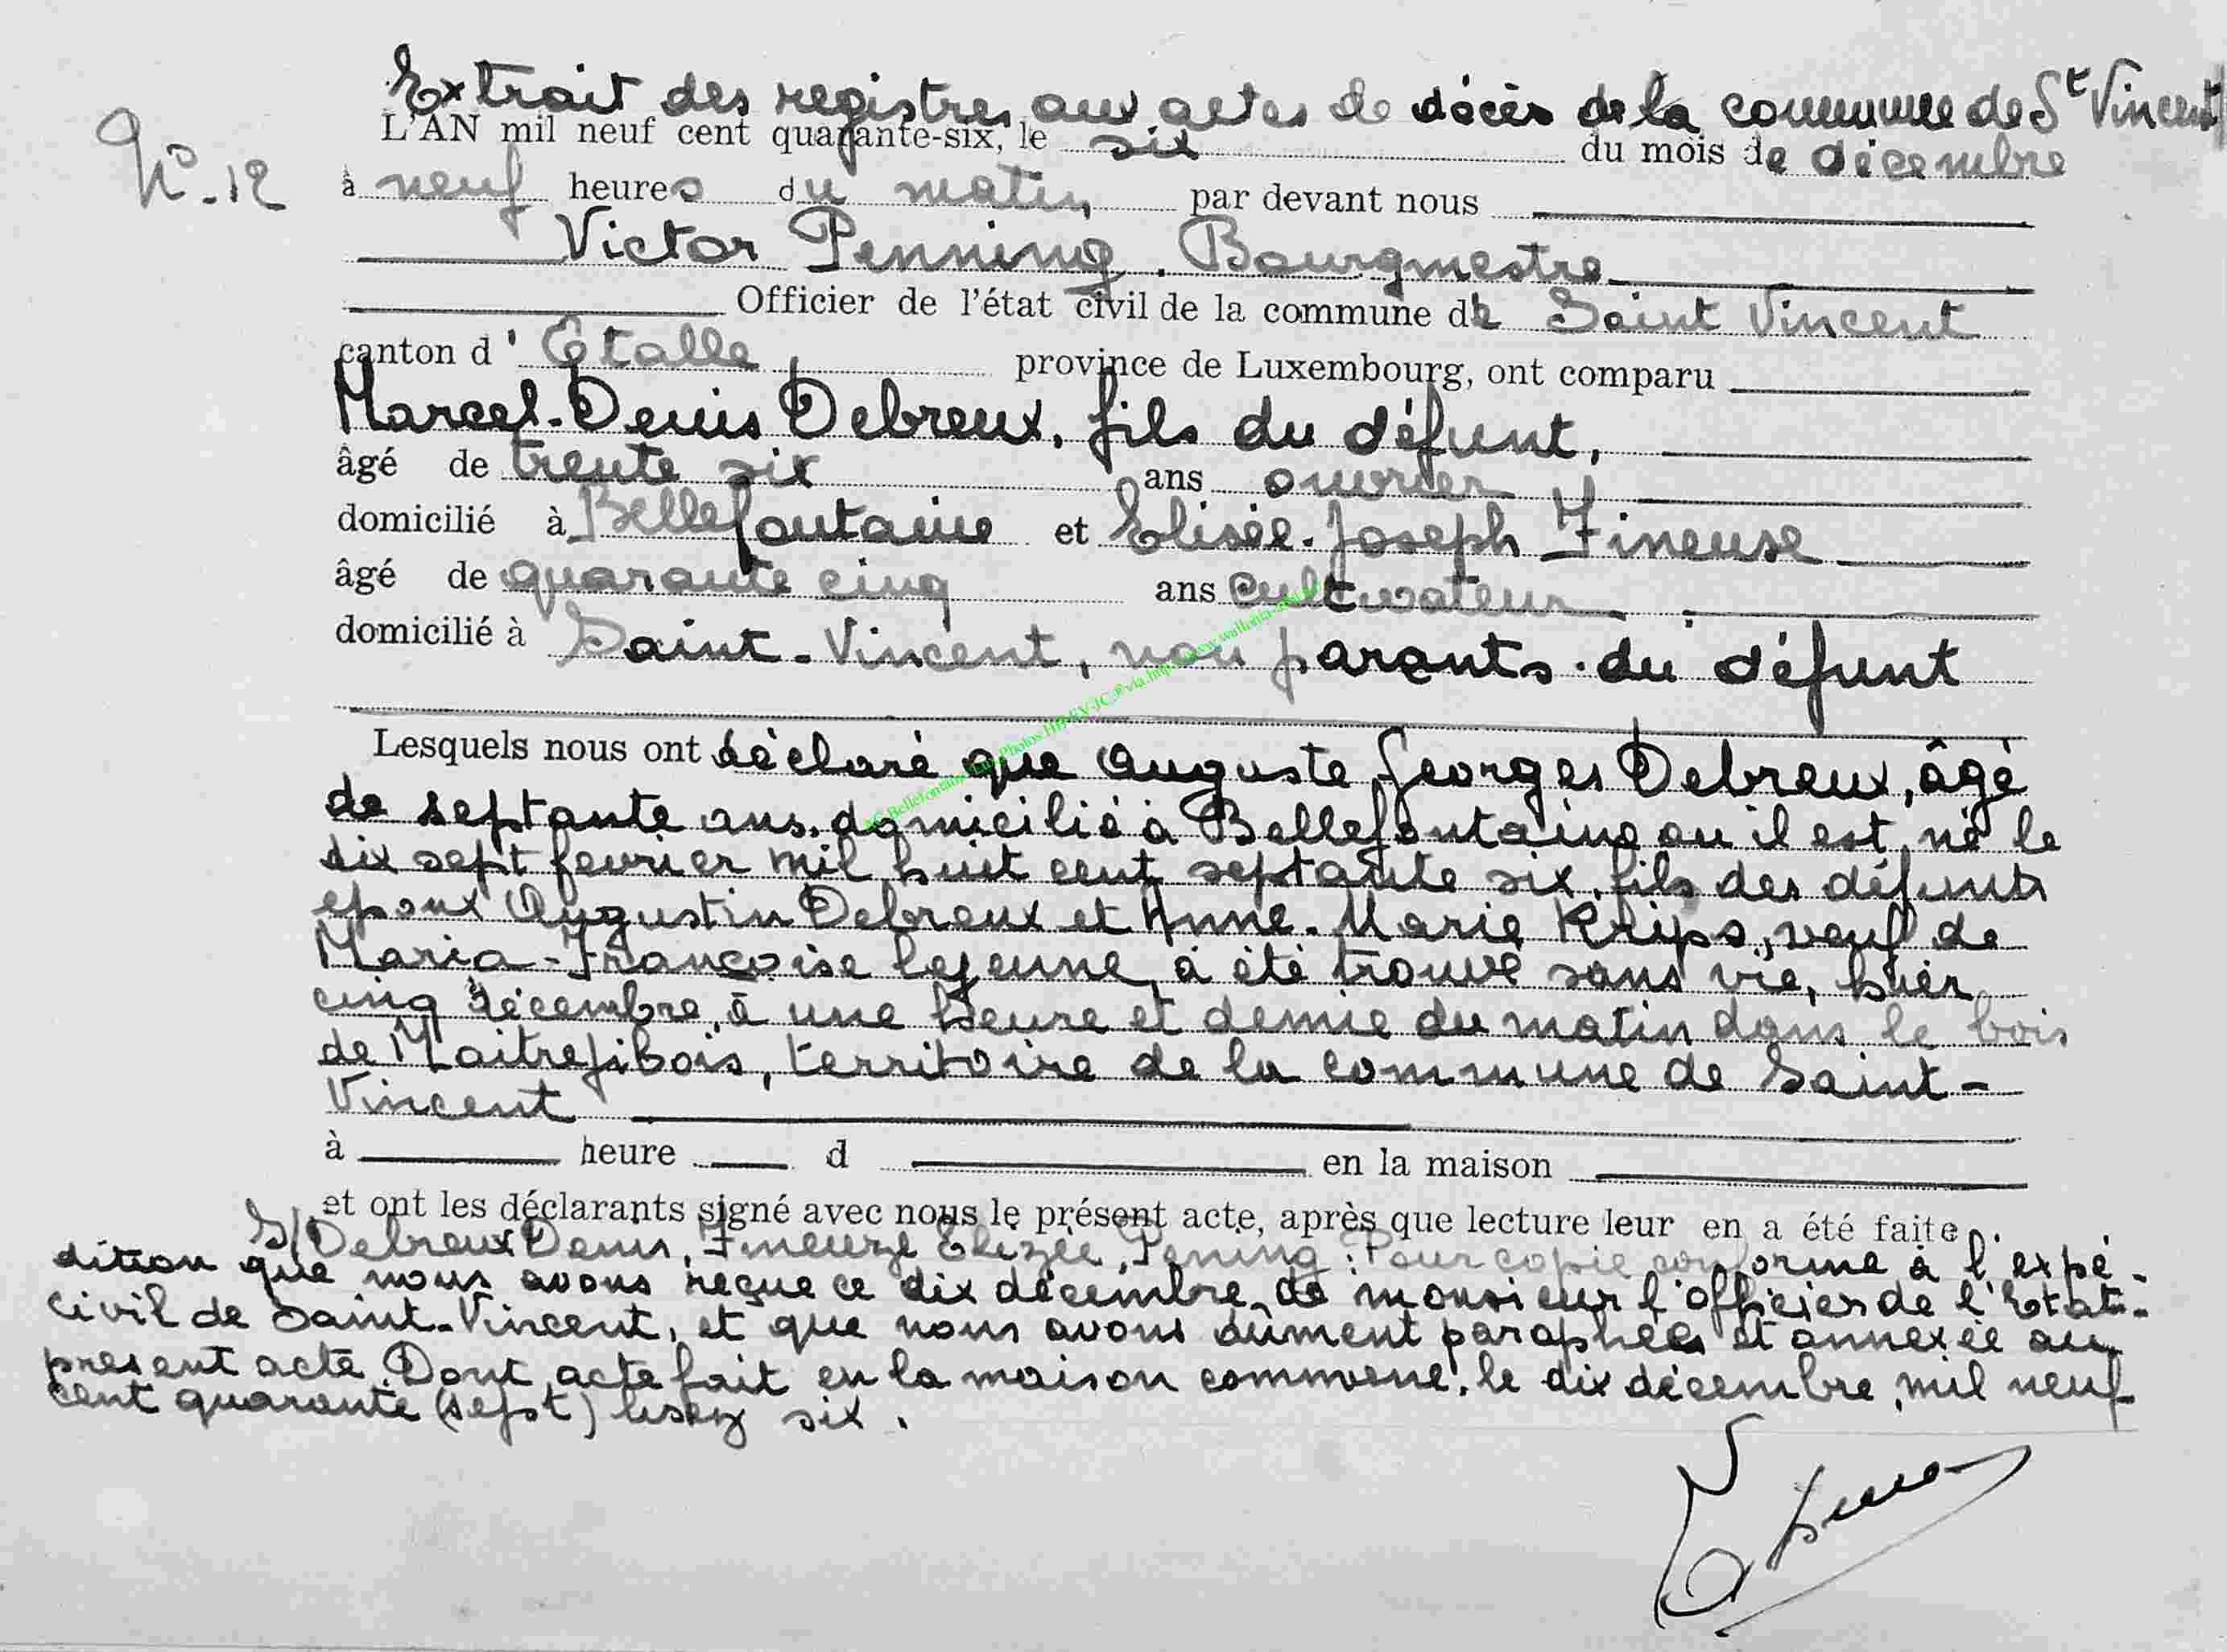 Extrait des registres aux actes de décès de la commune de St Vincent
N°-12
L'AN mil neuf cent quarante-six, le six du mois de décembre
à neuf heures du matin par devant nous
Victor Penning. Bourgmestre
Officier de l'état civil de la commune de Saint Vincent
canton d' Etalle province de Luxembourg, ont comparu
Marcel-Denis Debreux, fils du défunt,
âgé de trente six ans ouvrier
domicilié à Bellefontaine et Elisée-Joseph Fineuse
âgé de quarante cinq ans cultivateur
domicilié à Saint-Vincent, non parents du défunt
Lesquels nous ont déclaré que Auguste Georges Debreux, âgé
de septante ans, domicilié à Bellefontaine ou il est né le
dix sept fevrier mil huit cent septante six, fils des défunts
epoux Augustin Debreux et Anne-Marie Krips, veuf de
Maria-Françoise Lejeune, a été trouvé sans vie, hier
cinq décembre, à une heure et demie du matin dans le bois
de Maitrefibois, territoire de la commune de Saint-
Vincent
à heure d en la maison
et ont les déclarants signé avec nous le présent acte, après que lecture leur en a été faite.
S/ Debreux Denis, Fineuze Elizée, Pening: Pour copie conforme à l'expé-
dition que nous avons reçue ce dix décembre de monsieur l'officier de l'Etat-
civil de Saint-Vincent, et que nous avons dûment paraphée et annexée au
présent acte. Dont acte fait en la maison commune, le dix décembre, mil neuf
cent quarante (sept) lisez six.